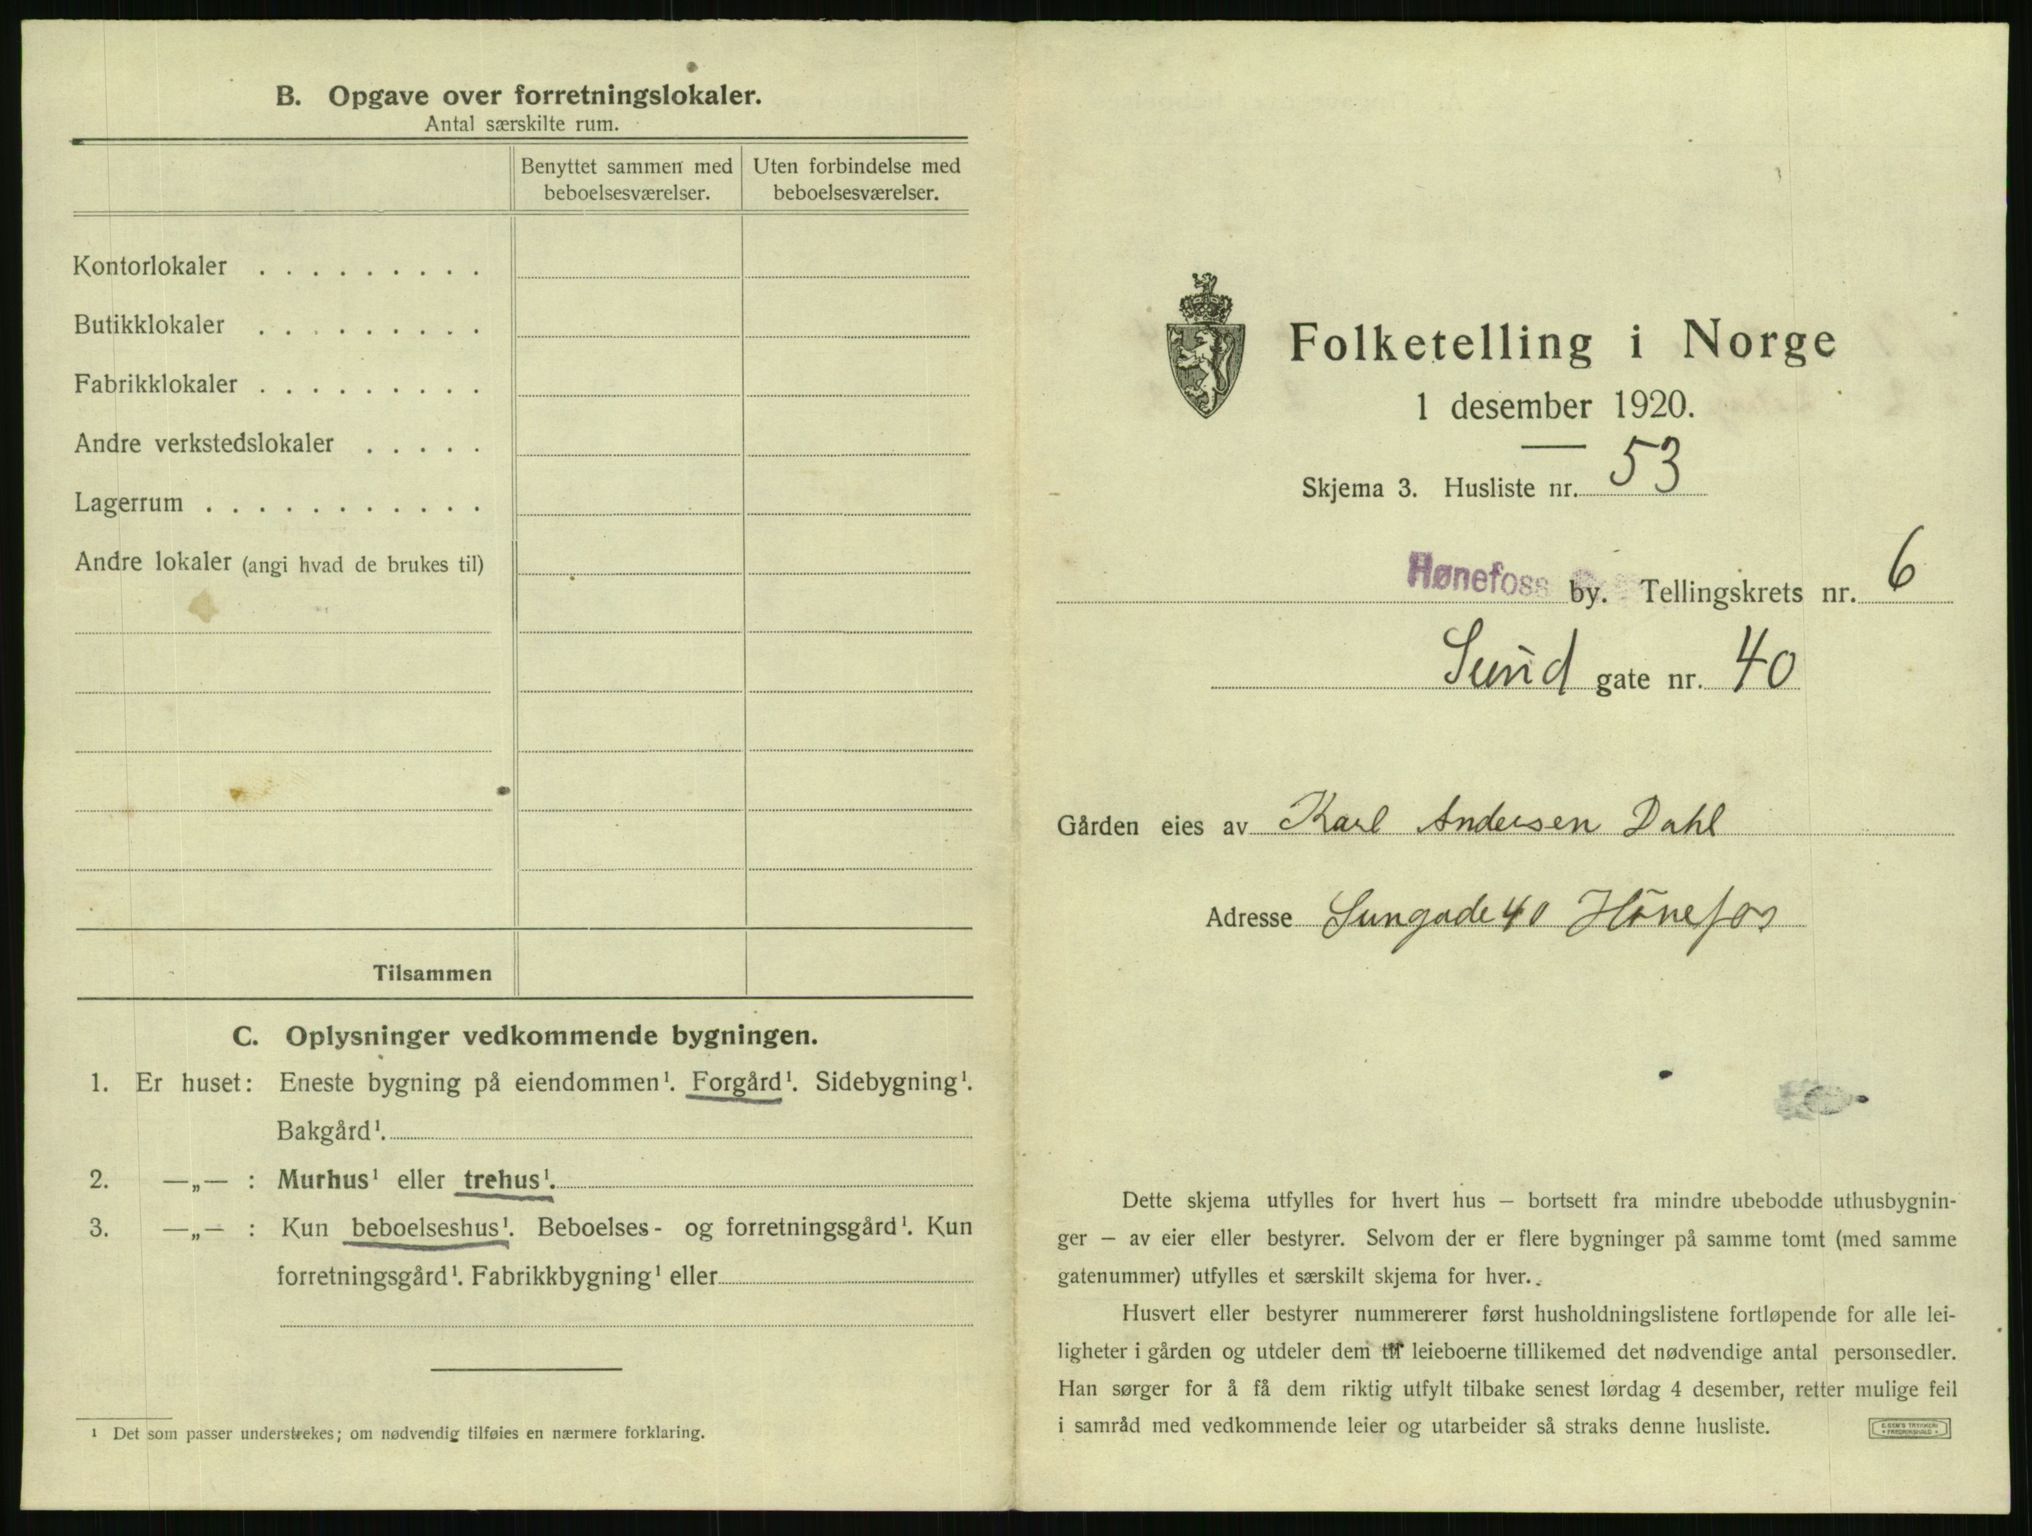 B. Opgave over forretningslokaler.
Antal særskilte rum.
Benyttet sammen med beboelsesværelser.
Uten forbindelse med beboelsesværelser.
Kontorlokaler . . . . . . . . .
Butikklokaler . . . . . . . . .
Fabrikklokaler . . . . . . . . .
Andre verkstedslokaler . . . . .
Lagerrum . . . . . . . . . . .
Andre lokaler (angi hvad de brukes til)
Tilsammen
C. Oplysninger vedkommende bygningen.
1. Er huset: Eneste bygning på eiendommen¹. Forgård¹. Sidebygning¹.
Bakgård¹.
2. —„— : Murhus¹ eller trehus¹.
3. —„— : Kun beboelseshus¹. Beboelses- og forretningsgård¹. Kun
forretningsgård¹. Fabrikkbygning¹ eller
¹ Det som passer understrekes; om nødvendig tilføies en nærmere forklaring.
Folketelling i Norge
1 desember 1920.
Skjema 3. Husliste nr. 53
Hønefoss by. Tellingskrets nr. 6
Sund gate nr. 40
Gården eies av Karl Andersen Dahl
Adresse Sungade 40 Hönefos
Dette skjema utfylles for hvert hus – bortsett fra mindre ubebodde uthusbygnin-
ger – av eier eller bestyrer. Selvom der er flere bygninger på samme tomt (med samme
gatenummer) utfylles et særskilt skjema for hver.
Husvert eller bestyrer nummererer først husholdningslistene fortløpende for alle lei-
ligheter i gården og utdeler dem til leieboerne tillikemed det nødvendige antal personsedler.
Han sørger for å få dem riktig utfylt tilbake senest lørdag 4 desember, retter mulige feil
i samråd med vedkommende leier og utarbeider så straks denne husliste.
E. SEM'S TRYKKERI
FREDRIKSHALD